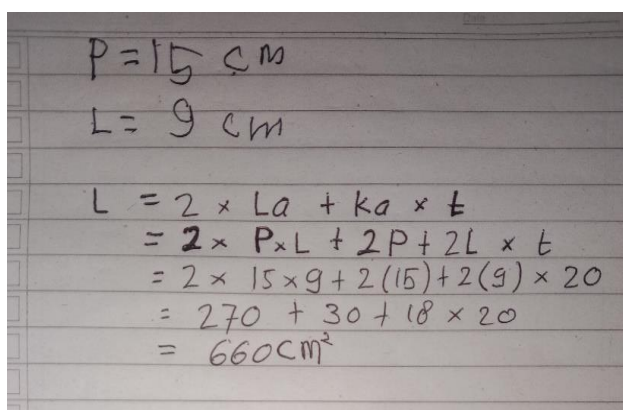 P = 15 cm
L = 9 cm
L = 2 × La + ka × t
= 2 × P×L + 2P + 2L × t
= 2 × 15 × 9 + 2(15) + 2(9) × 20
= 270 + 30 + 18 × 20
= 660 cm²